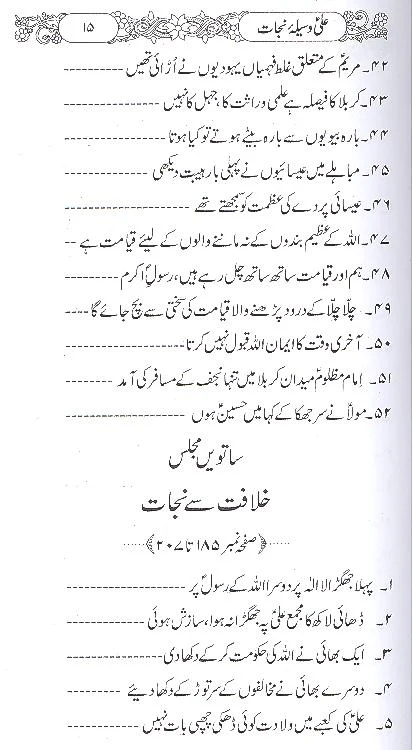 علیؑ وسیلۂ نجات
۱۵
۴۲۔ مریمؑ کے متعلق غلط فہمیاں یہودیوں نے اُڑائی تھیں ----------
۴۳۔ کربلا کا فیصلہ ہے علمی وراثت کا، جہل کا نہیں ----------
۴۴۔ بارہ بیویوں سے بارہ بیٹے ہوتے تو کیا ہوتا ----------
۴۵۔ مباہلے میں عیسائیوں نے پہلی بار ہیبت دیکھی ----------
۴۶۔ عیسائی پردے کی عظمت کو سمجھتے تھے ----------
۴۷۔ اللہ کے عظیم بندوں کے نہ ماننے والوں کے لیئے قیامت ہے --
۴۸۔ ہم اور قیامت ساتھ ساتھ چل رہے ہیں، رسولِؐ اکرم -------
۴۹۔ چلّا چلّا کے درود پڑھنے والا قیامت کی سختی سے بچ جائے گا ----
۵۰۔ آخری وقت کا ایمان اللہ قبول نہیں کرتا ----------
۵۱۔ امام مظلومؑ میدانِ کربلا میں تنہا نجف کے مسافر کی آمد -------
۵۲۔ مولاؑ نے سر جھکا کے کہا میں حسینؑ ہوں ----------
ساتویں مجلس
خلافت سے نجات
﴿صفحہ نمبر ۱۸۵ تا ۲۰۷﴾
۱۔ پہلا جھگڑا لا الٰہ پر دوسرا اللہ کے رسولؐ پر ----------
۲۔ ڈھائی لاکھ کا مجمع علیؑ پہ جھگڑا نہ ہوا، سازش ہوئی ----------
۳۔ ایک بھائی نے اللہ کی حکومت کر کے دکھا دی ----------
۴۔ دوسرے بھائی نے مخالفوں کے سر توڑ کے دکھا دیئے --------
۵۔ علیؑ کی کعبے میں ولادت کوئی ڈھکی چھپی بات نہیں ----------